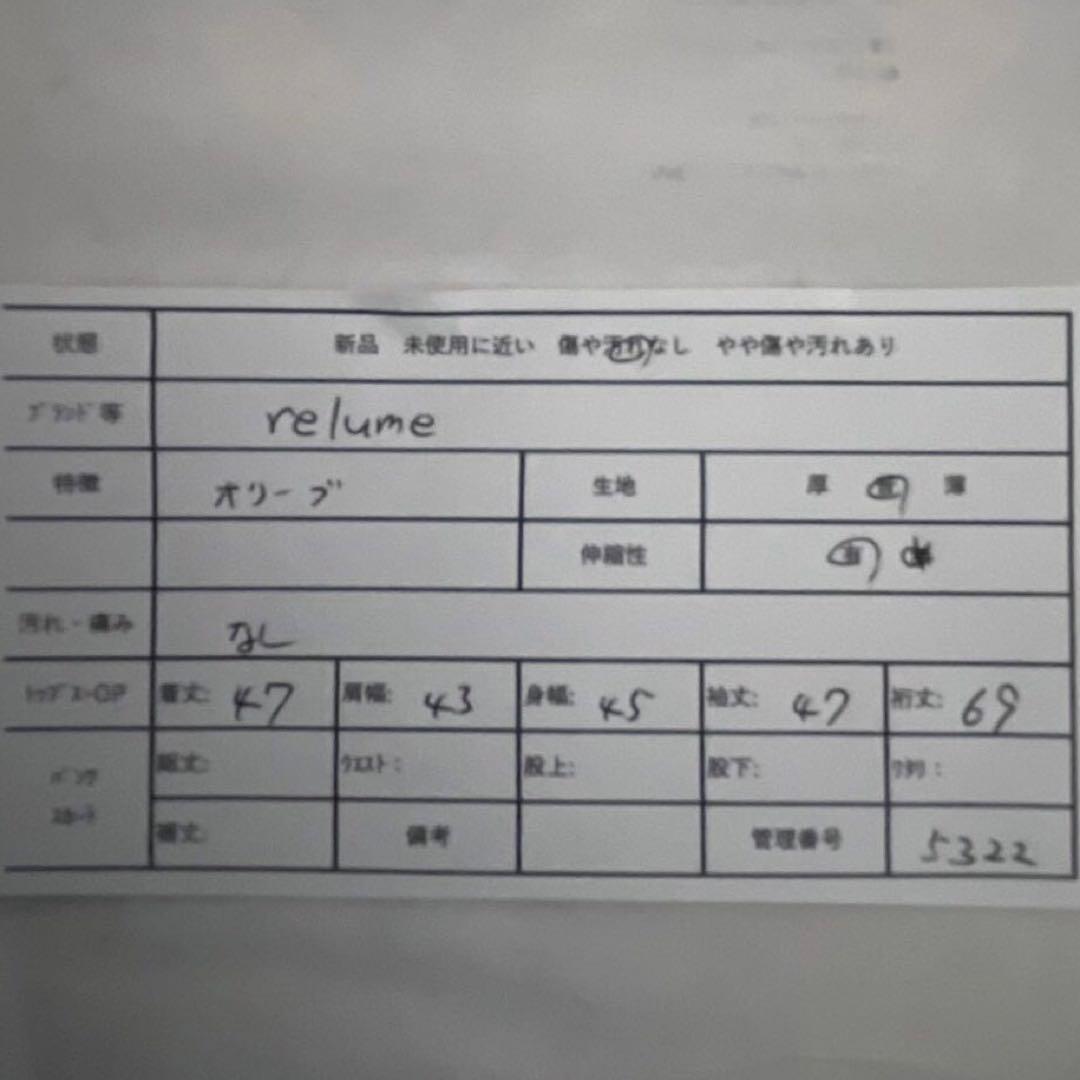 状態 新品 未使用に近い 傷や汚れなし やや傷や汚れあり
ブランド等 relume
特徴 オリーブ 生地 厚 普 薄
伸縮性 有
汚れ・痛み なし
トップス・OP 着丈: 47 肩幅: 43 身幅: 45 袖丈: 47 裄丈: 69
パンツ 総丈: ウエスト: 股上: 股下: ワタリ:
スカート
備考 管理番号 5322